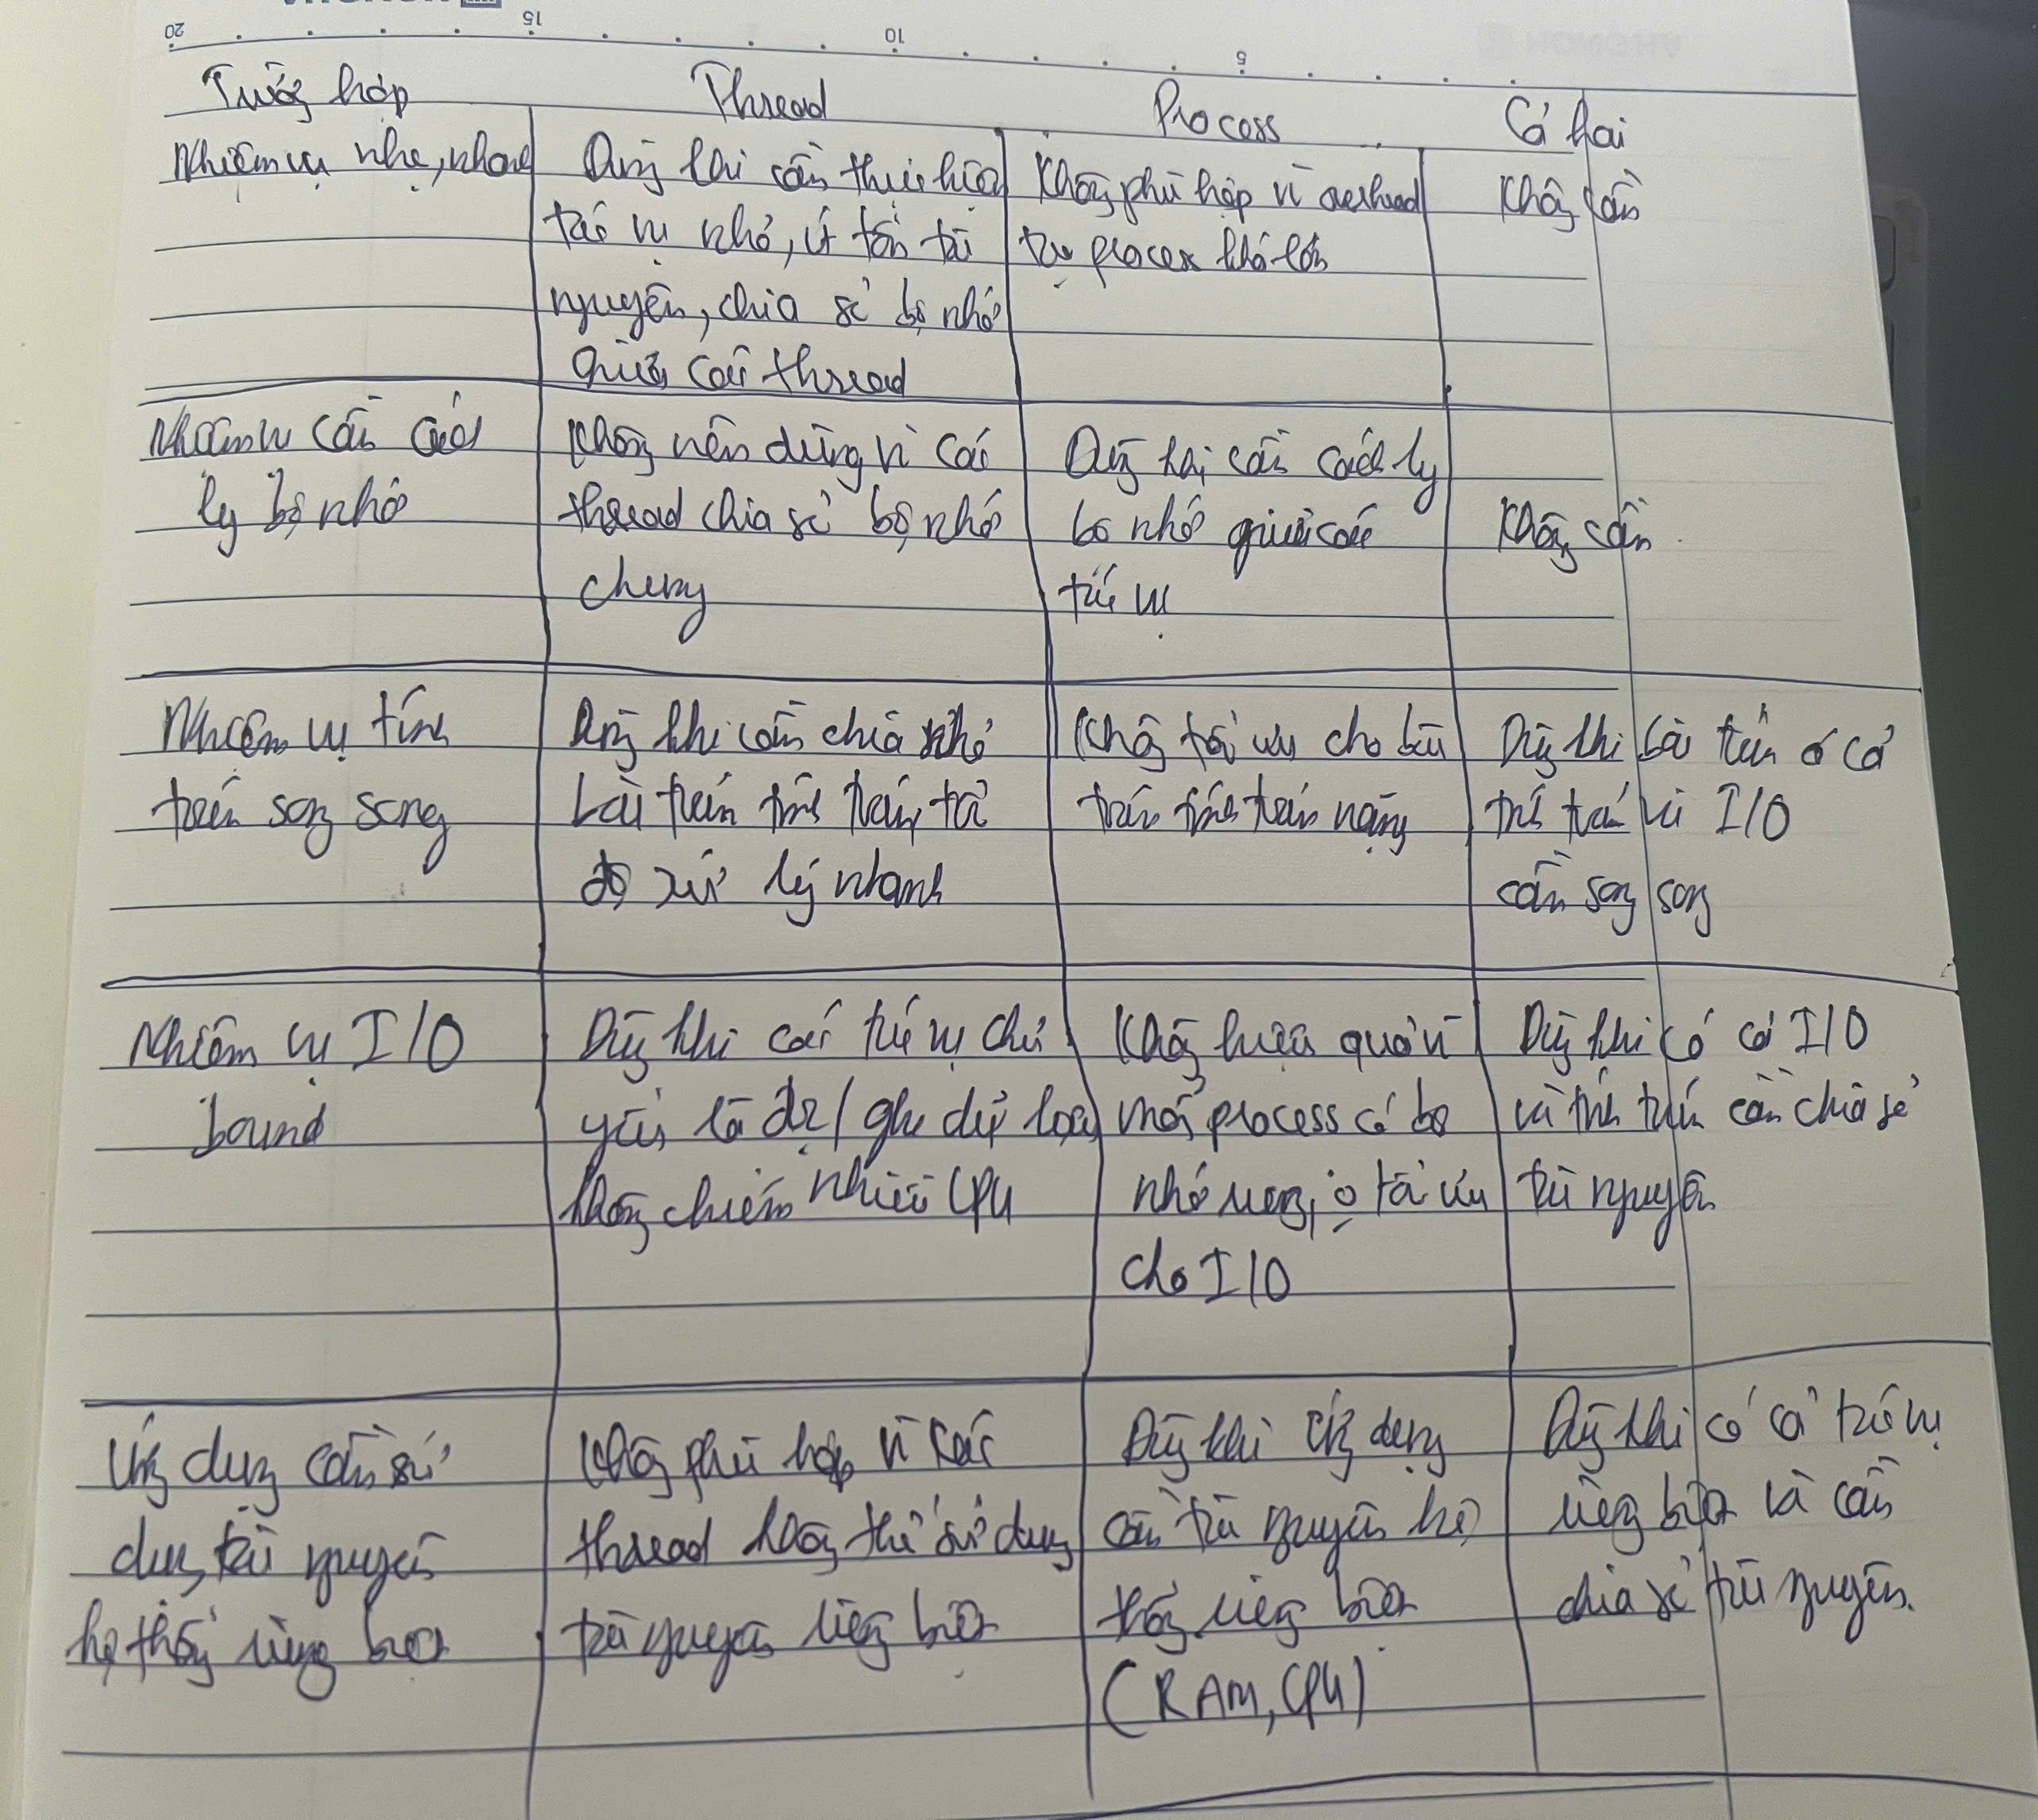 20 15 10 5
Trường hợp Thread Process Cả hai
Nhiệm vụ nhẹ, nhanh
Dùng khi cần thực hiện
tác vụ nhỏ, ít tốn tài
nguyên, chia sẻ bộ nhớ
giữa các thread
Không phù hợp vì overhead
tạo process khá lớn
Không cần
Nhiệm vụ cần cách
ly bộ nhớ
Không nên dùng vì các
thread chia sẻ bộ nhớ
chung
Dùng khi cần cách ly
bộ nhớ giữa các
tác vụ
Không cần
Nhiệm vụ tính
toán song song
Dùng khi cần chia nhỏ
bài toán tính toán, tốc
độ xử lý nhanh
Không tối ưu cho bài
toán tính toán nặng
Dùng khi bài toán có cả
tính toán và I/O
cần song song
Nhiệm vụ I/O
bound
Dùng khi các tác vụ chủ
yếu là đọc/ghi dữ liệu
không chiếm nhiều CPU
Không hiệu quả vì
mỗi process có bộ
nhớ riêng, ko tối ưu
cho I/O
Dùng khi có cả I/O
và tính toán cần chia sẻ
tài nguyên
Ứng dụng cần sử
dụng tài nguyên
hệ thống riêng biệt
Không phù hợp vì các
thread không thể sử dụng
tài nguyên riêng biệt
Dùng khi ứng dụng
cần tài nguyên hệ
thống riêng biệt
(RAM, CPU)
Dùng khi có cả tác vụ
riêng biệt và cần
chia sẻ tài nguyên.